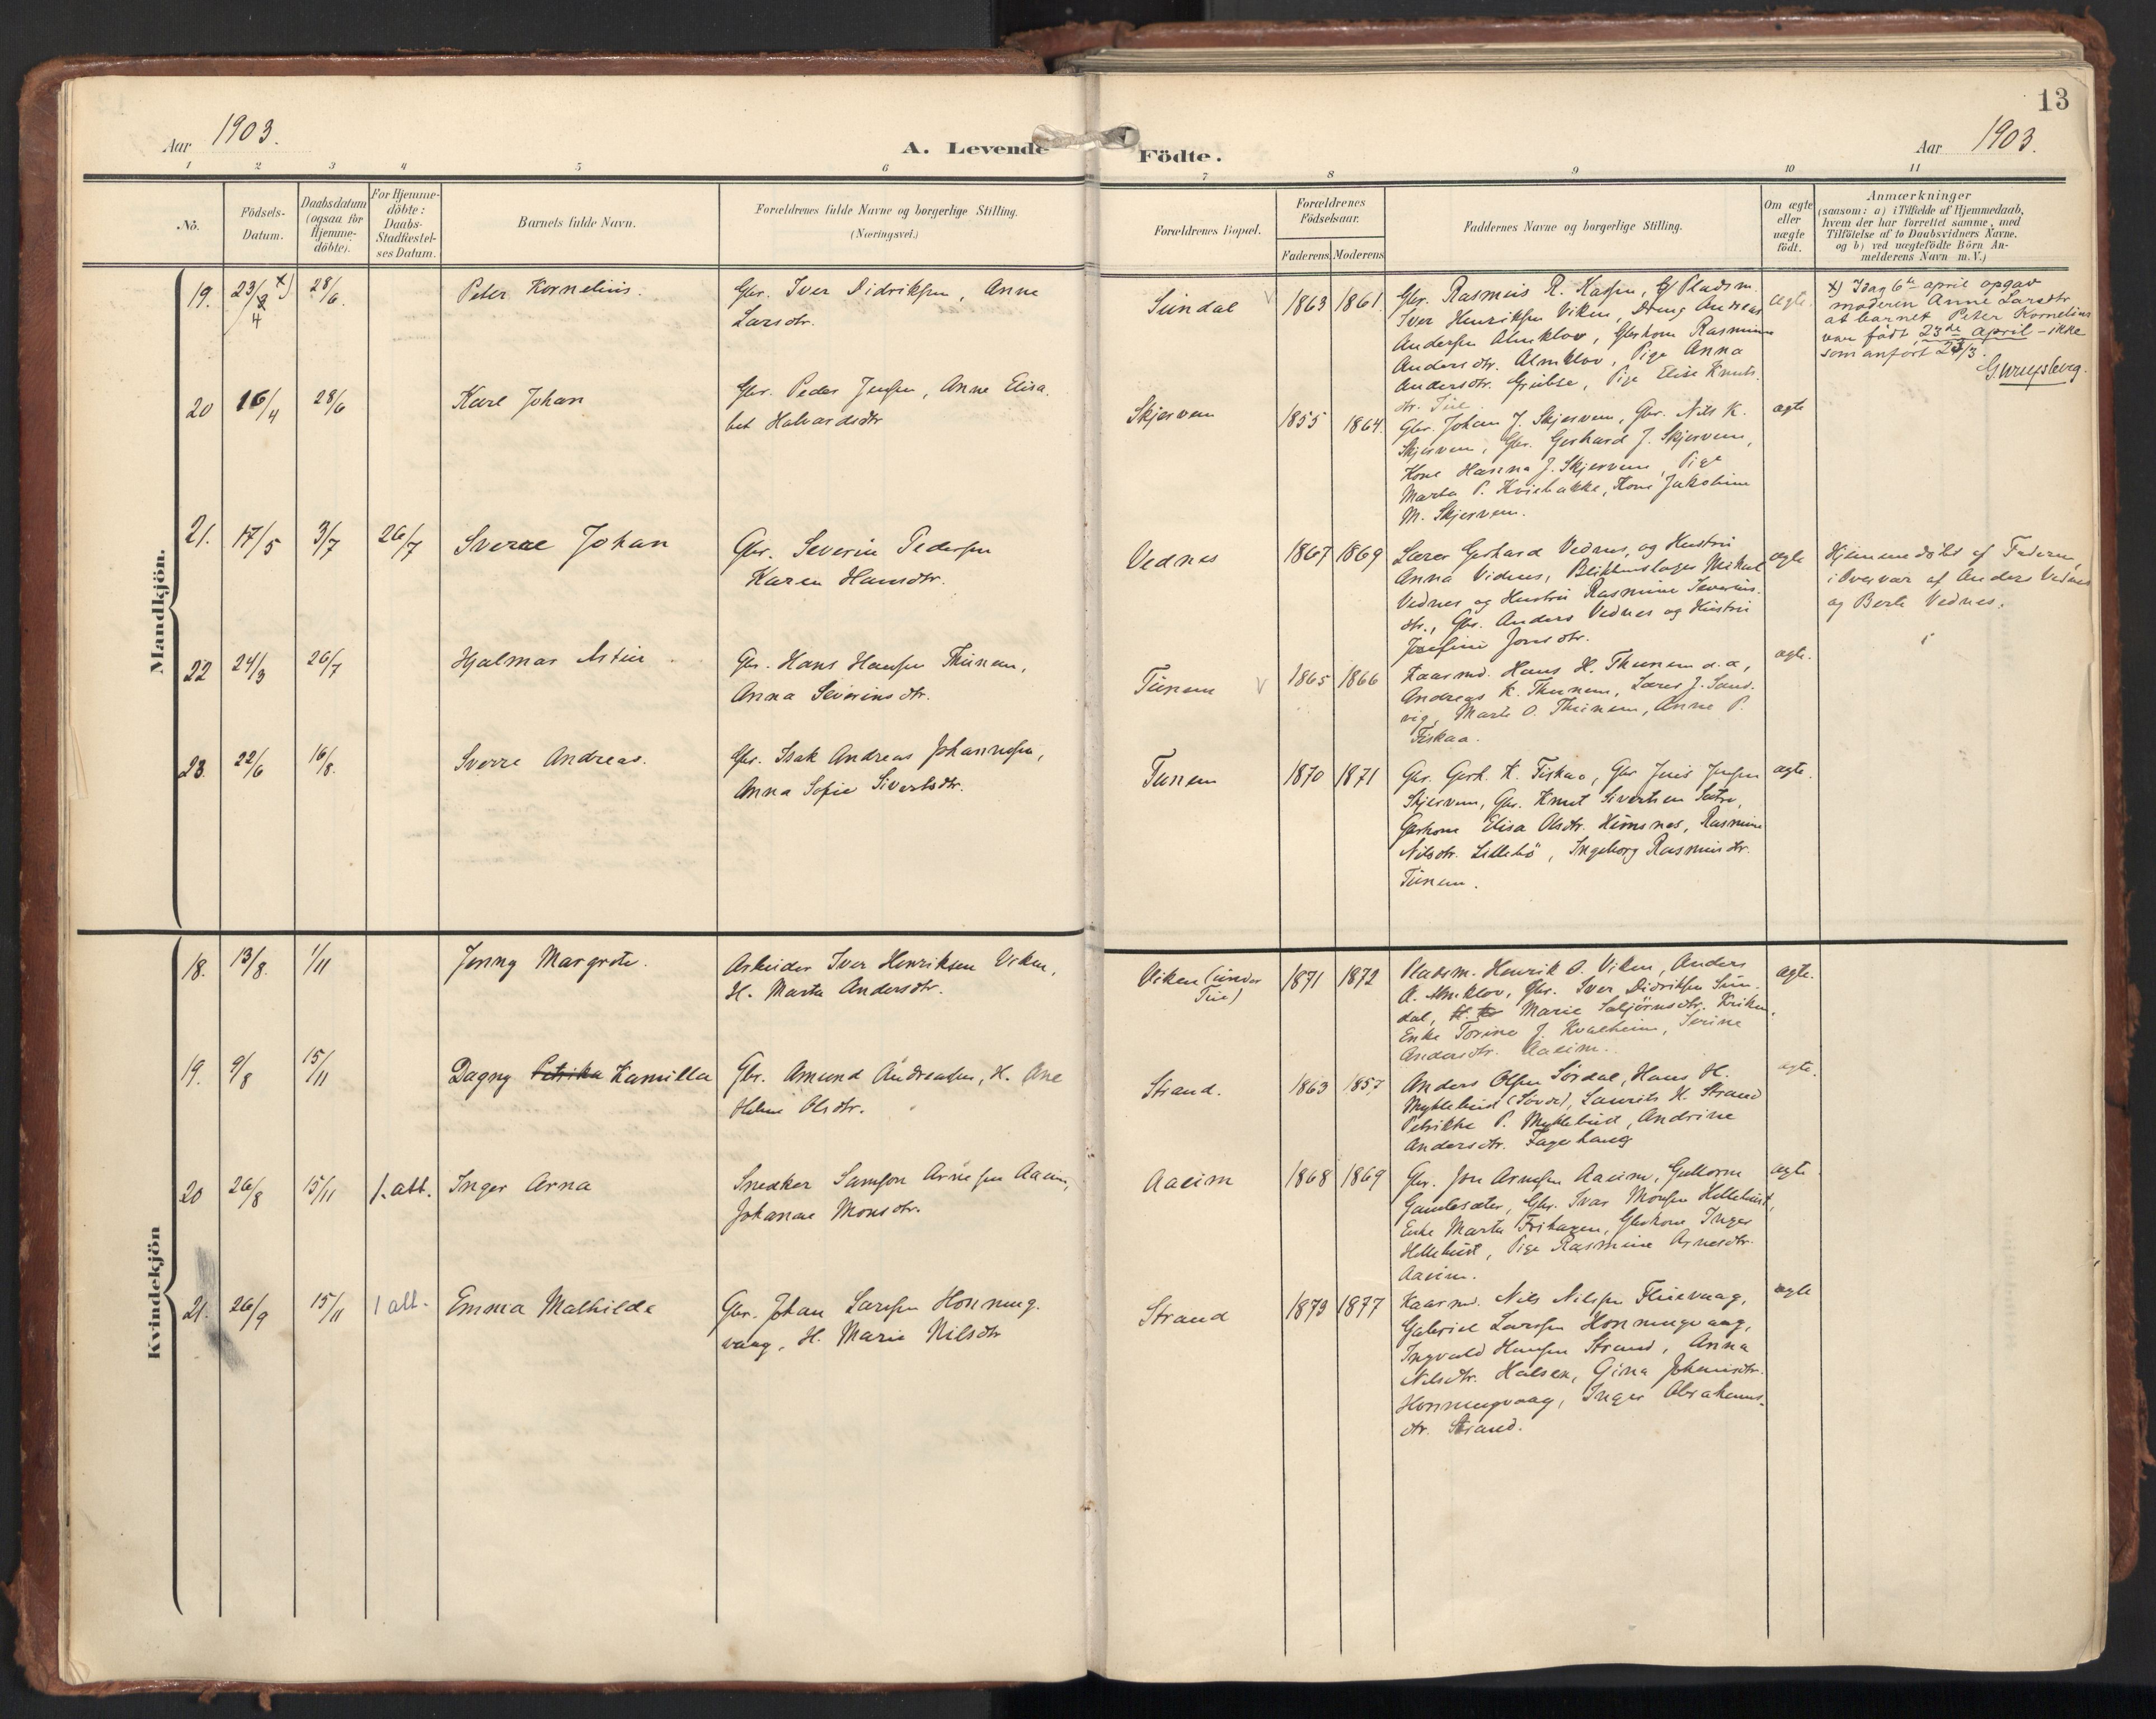 13
Aar 1903.
A. Levende Födte.
Aar 1903.
1 2 3 4 5 6 7 8 9 10 11
No.
Födsels-
Datum.
Daabsdatum
(ogsaa for
Hjemme-
döbte).
For Hjemme-
döbte:
Daabs-
Stadfæstel-
ses Datum.
Barnets fulde Navn.
Forældrenes fulde Navne og borgerlige Stilling.
(Næringsvei.)
Forældrenes Bopæl.
Forældrenes
Födselsaar.
Faderens Moderens
Faddernes Navne og borgerlige Stilling.
Om ægte
eller
uægte
födt.
Anmærkninger
(saasom: a) i Tilfælde af Hjemmedaab,
hvem der har forrettet samme, med
Tilföielse af to Daabsvidners Navne,
og b) ved uægtefödte Börn An-
melderens Navn m. V.)
Mandkjön.
19. 23/4 x) 28/6. Peter Kornelius.
Gbr. Iver Didriksen, Anne
Larsdtr.
Sundal 1863 1861
Gbr. Rasmus R. Pladsm.
Iver Henriksen Viken, Dreng Andreas
Andersen Almklov, Gbrkone Rasmine
Andersdtr. Almklov, Pige Anna
Andersdtr. Grubse, Pige Elise Knuts
dtr.
ægte.
x) Idag 6te april opgav
moderen Anne Larsdtr
at barnet Peter Kornelius
var født 23de april - ikke
som anført 23/3.
20 16/4 28/6 Karl Johan
Gbr. Peder Jensen, Anne Elisa
bet Halvardsdtr
Skjervem 1855 1864.
Gbr. Johan J. Skjervem, Gbr. Nils K.
Skjervem, Gbr. Gerhard J. Skjervem,
Kone Hanna J. Skjervem, Pige
Marta P. Kone Jakobine
M. Skjervem.
ægte
21. 17/5 3/7 26/7 Sverre Johan
Gbr. Severin Pedersen
Karen Hansdtr.
Vednes 1867 1869
Lærer Gerhard Vednes, og Hustru
Anna Vednes, Blikkenslager Mikal
Vednes og Hustru Rasmine Severins
dtr., Gbr. Anders Vednes og Hustru
Josefine Jonsdtr.
ægte
Hjemmedöbt af Faderen,
i Overvær af Anders Vednes
og Berte Vednes.
22 24/3 26/7 Hjalmar
Gbr. Hans Hansen Thunem,
Anna Severinsdtr.
Tunem 1865 1866
Kaarmd. Hans H. Thunem d. æ,
Andreas K. Thunem, Lærer J. Sand-
vig, Marte O. Thunem, Anne P.
Fiskaa.
ægte.
23. 22/6 16/8. Sverre Andreas.
Gbr. Isak Andreas Johannesen,
Anna Sofie Sivertsdtr.
Tunem 1870 1871
Gbr. Gerh. K. Fiskaa, Gbr Jens Jensen
Skjervem, Gbr. Knut Sivertsen Sætre,
Gbrkone Elisa Olsdtr. Humsnes, Rasmine
Nilsdtr. Lillebö, Ingeborg Rasmusdtr.
Tunem.
ægte.
Kvindekjön
18. 13/8. 1/11 Jenny Margrete.
Arbeider Iver Henriksen Viken,
H. Marta Andersdtr.
Viken (under
Tue) 1871 1872
Pladsm. Henrik O. Viken, Anders
A. Almklov, Gbr. Iver Didriksen Sun-
dal, Marie
Enke Torine J. Kvalheim, Serine
Andersdtr. Aaeim.
ægte.
19. 9/8 15/11 Dagny Petrika Kamilla
Gbr. Amund Andreassen, H. Ane
Helene Olsdtr.
Strand. 1863 1857
Anders Olsen Sørdal, Hans H.
Myklebust (Søvde), Laurits H. Strand
Petrikke P. Myklebust, Andrine
Andersdtr. Fagerhaug
ægte.
20 26/8 15/11 1. att. Inger Arna
Snedker Samson Arnesen Aaeim,
Johanne Monsdtr.
Aaeim 1868 1869
Gbr. Jon Arnesen Aaeim, Guttorm
Gamlesæter, Gbr. Ivar Monsen Hellebust,
Enke Marta Frihagen, Gbrkone Inger
Hellebust, Pige Rasmine Arnesdtr.
Aaeim.
ægte
21. 26/9 15/11 1 att. Emma Mathilde
Gbr. Johan Larsen Honning-
vaag, H. Marie Nilsdtr
Strand 1873 1877
Kaarmd. Nils Nilsen Fluevaag,
Gabriel Larsen Honningvaag,
Ingvald Hansen Strand, Anna
Nilsdtr. Halsen, Gina Johansdtr.
Honningvaag, Inger Abrahams-
dtr. Strand.
ægte